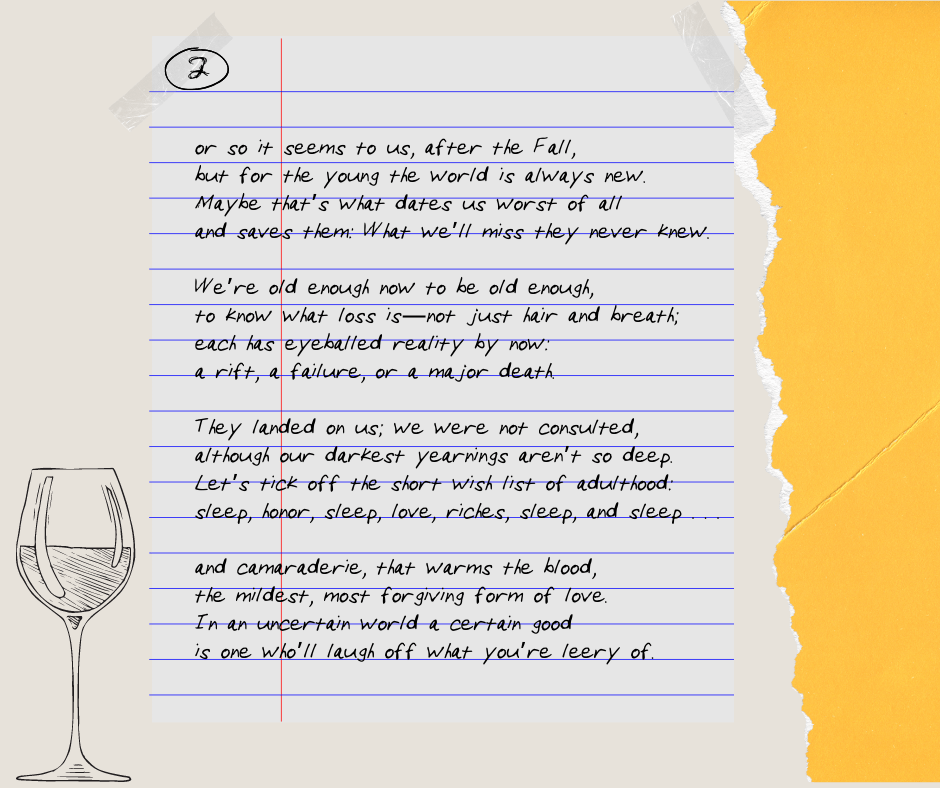 2
or so it seems to us, after the Fall,
but for the young the world is always new.
Maybe that's what dates us worst of all
and saves them: What we'll miss they never knew.
We're old enough now to be old enough,
to know what loss is—not just hair and breath;
each has eyeballed reality by now:
a rift, a failure, or a major death.
They landed on us; we were not consulted,
although our darkest yearnings aren't so deep.
Let's tick off the short wish list of adulthood:
sleep, honor, sleep, love, riches, sleep, and sleep . . .
and camaraderie, that warms the blood,
the mildest, most forgiving form of love.
In an uncertain world a certain good
is one who'll laugh off what you're leery of.